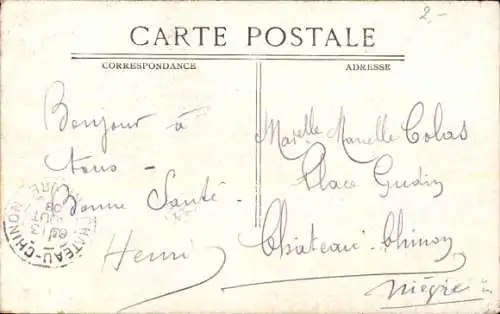 2.-
CARTE POSTALE
CORRESPONDANCE
ADRESSE
Bonjour à
tous -
Bonne Santé.
Henri
Marcelle Colas
Place Gudin
Château-Chinon
Nièvre
CHATEAU-CHINON